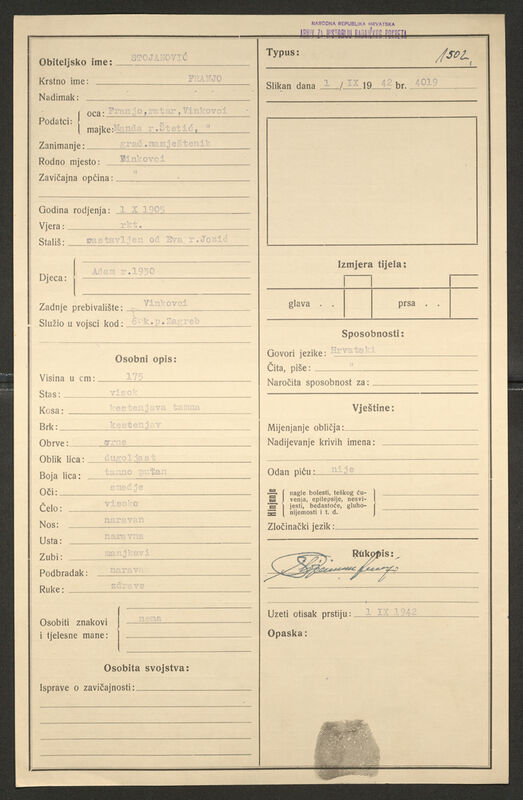 NARODNA REPUBLIKA HRVATSKA
ARHIV ZA HISTORIJU RADNIČKOG POKRETA
Obiteljsko ime: STOJANOVIĆ
Krstno ime: FRANJO
Nadimak:
Podatci: oca: Franjo, ratar, Vinkovci
majke: Manda r.Štetić, "
Zanimanje: grad.namještenik
Rodno mjesto: Vinkovci
Zavičajna općina: "
Godina rodjenja: 1 X 1905
Vjera: rkt.
Stališ: rastavljen od Eva r.Jozić
Djeca: Adam r.1930
Zadnje prebivalište: Vinkovci
Služio u vojsci kod: 6.k.p.Zagreb
Osobni opis:
Visina u cm: 175
Stas: visok
Kosa: kestenjava tamna
Brk: kestenjav
Obrve: crne
Oblik lica: dugoljast
Boja lica: tamno putan
Oči: smedje
Čelo: visoko
Nos: naravan
Usta: naravna
Zubi: manjkavi
Podbradak: naravan
Ruke: zdrave
Osobiti znakovi i tjelesne mane: nema
Osobita svojstva:
Isprave o zavičajnosti:
Typus: 1502.
Slikan dana 1 / IX 1942 br. 4019
Izmjera tijela:
glava . . prsa . .
Sposobnosti:
Govori jezike: Hrvatski
Čita, piše: "
Naročita sposobnost za:
Vještine:
Mijenjanje obličja:
Nadijevanje krivih imena:
Odan piću: nije
Hinjenje
nagle bolesti, teškog ću-
venja, epilepsije, nesvi-
jesti, bedastoće, gluho-
nijemosti i t. d.
Zločinački jezik:
Rukopis:
Uzeti otisak prstiju: 1 IX 1942
Opaska: